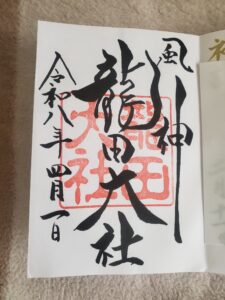 風神
龍田大社
龍田大社
令和八年四月一日